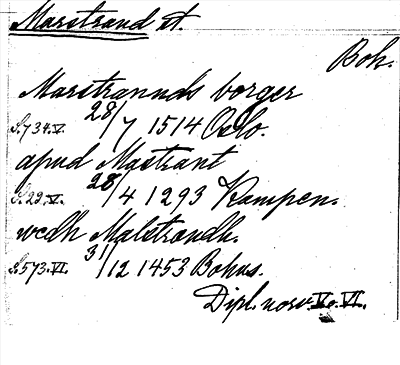 Marstrand st.
Boh.
Marstrannds borger
S.734.V. 28/7 1514 Oslo.
apud Mastrant
S.29.V. 28/4 1293 Kampen.
wedh Malstrandh.
S.573.VI. 31/12 1453 Bohus.
Dipl. norv. V. o. VI.